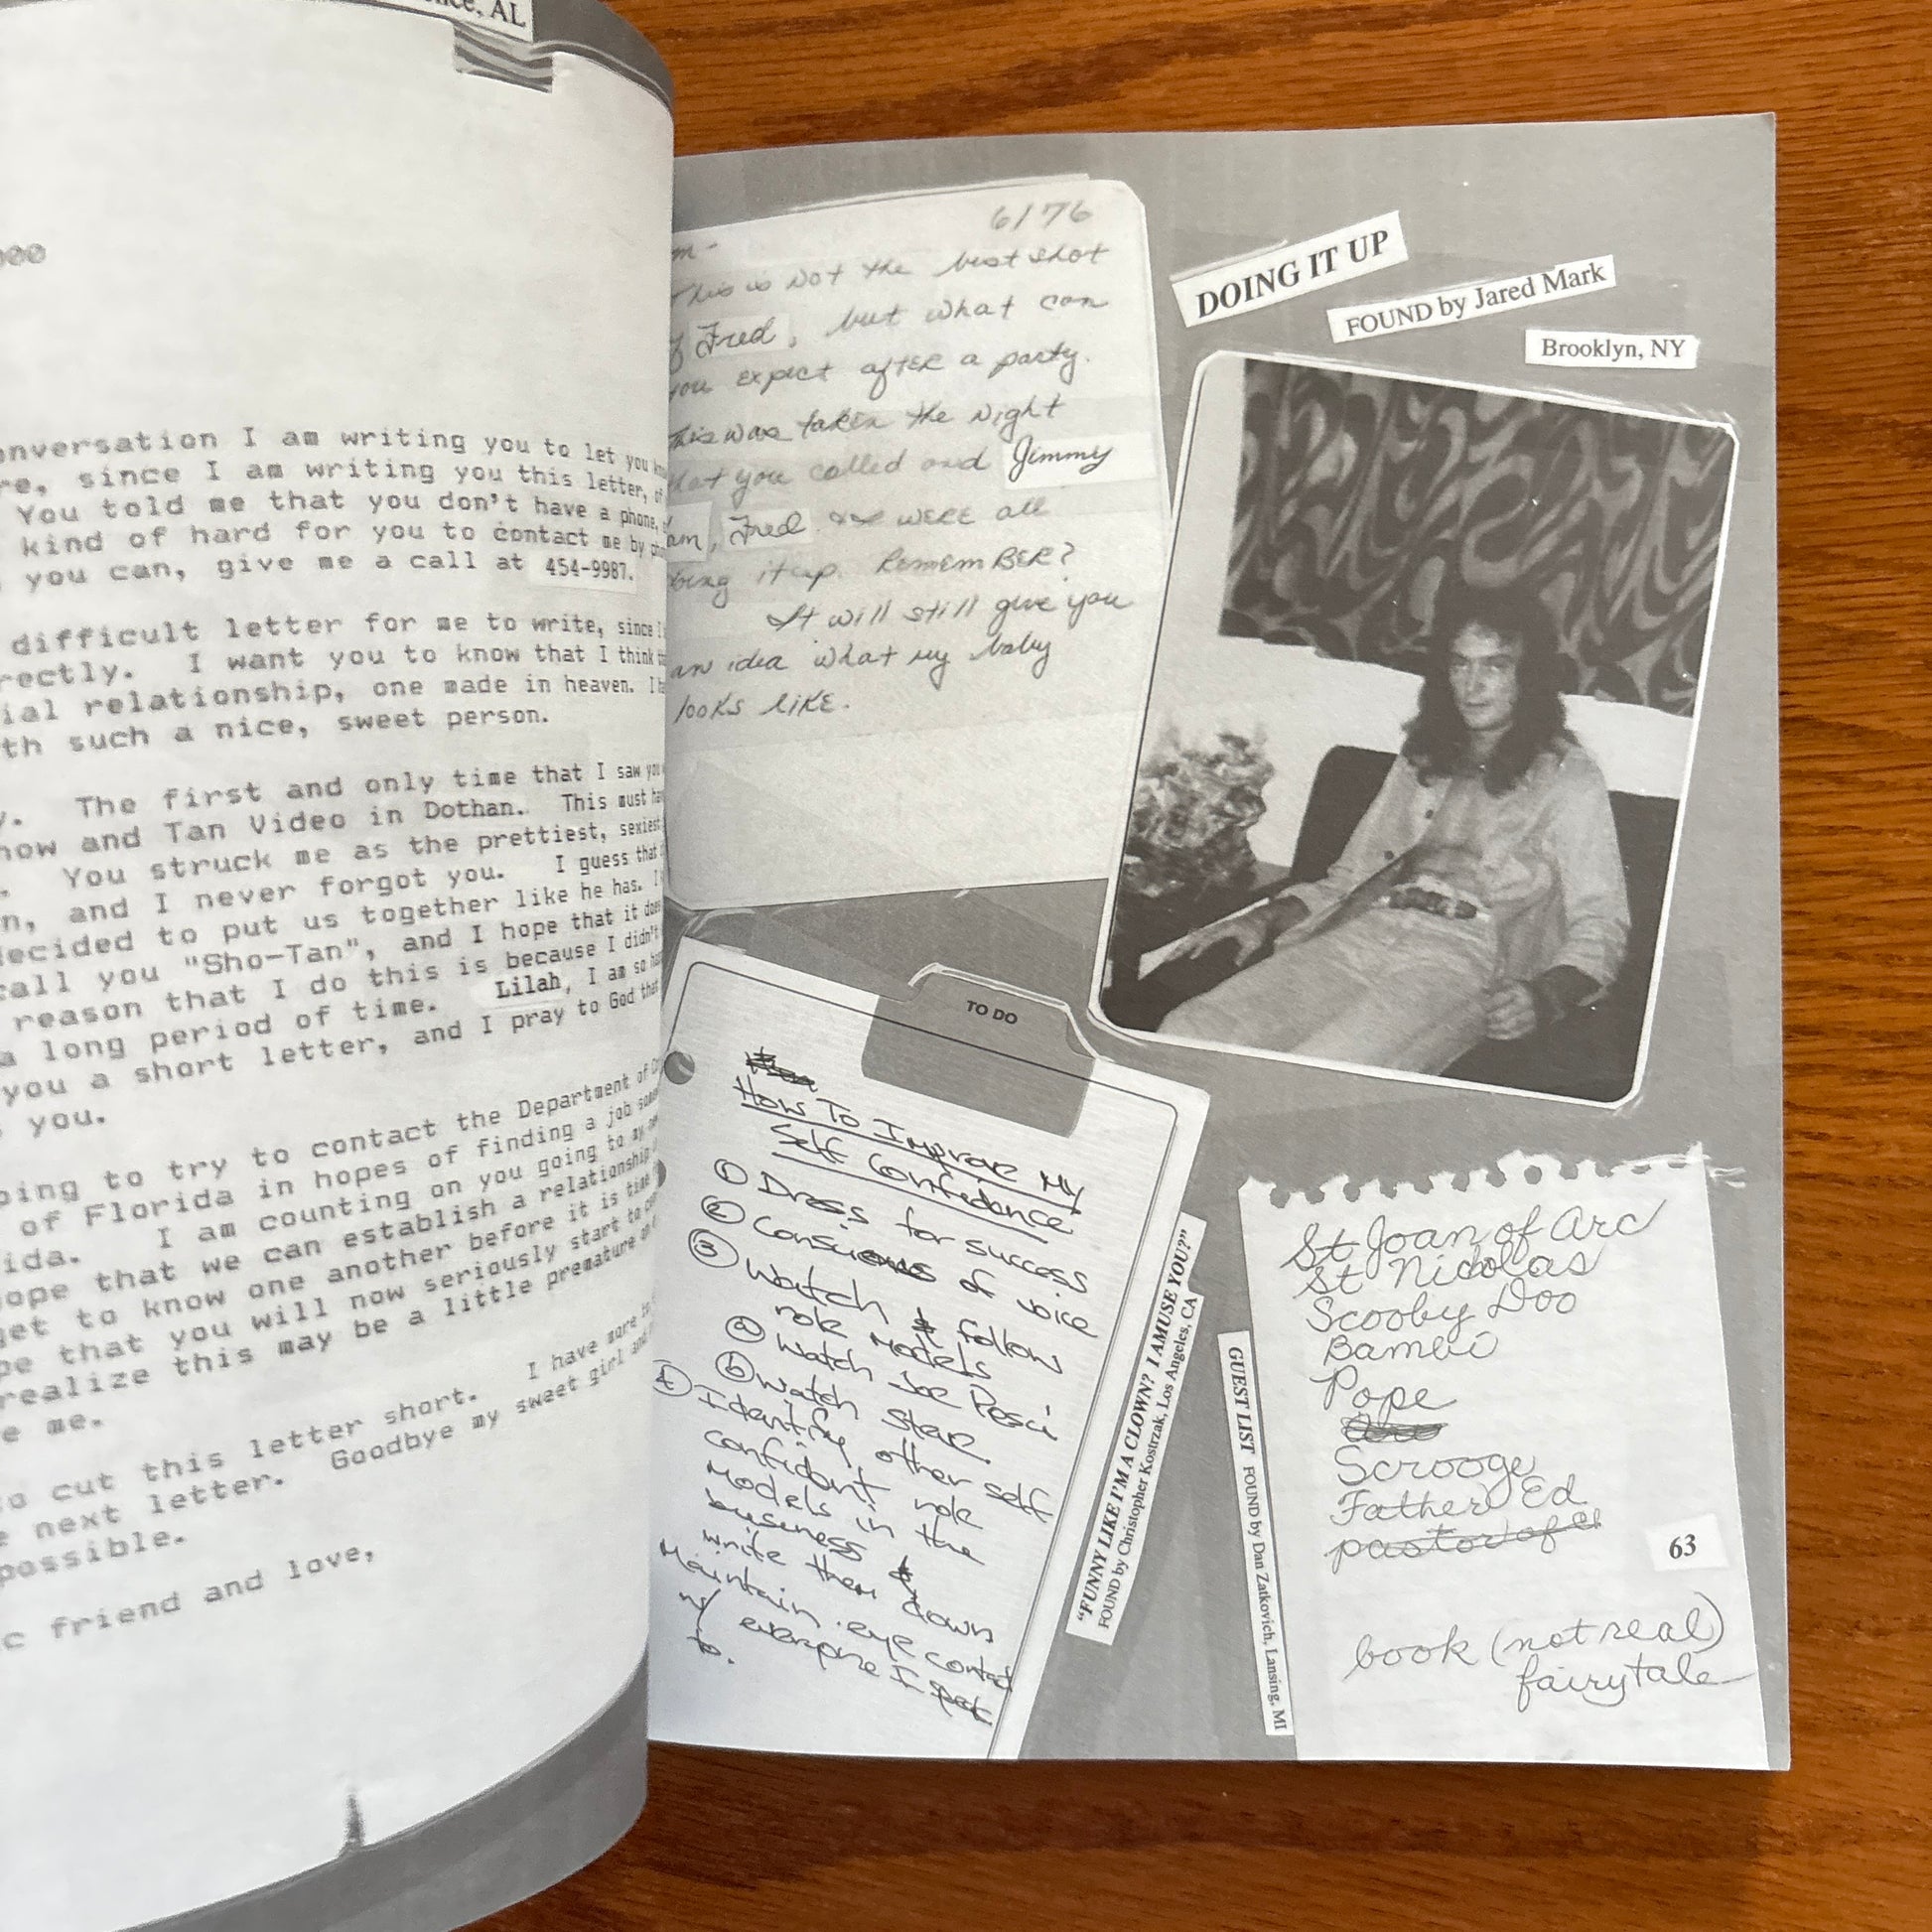 AL
000
conversation I am writing you to let you
since I am writing you this letter,
You told me that you don't have a phone,
kind of hard for you to contact me by
you can, give me a call at 454-9987.
difficult letter for me to write, since
I want you to know that I think
relationship, one made in heaven. I
such a nice, sweet person.
The first and only time that I saw you
and Tan Video in Dothan. This must
You struck me as the prettiest, sexiest
and I never forgot you. I guess that
decided to put us together like he has.
call you "Sho-Tan", and I hope that it does
reason that I do this is because I didn't
a long period of time. Lilah, I am so
you a short letter, and I pray to God that
you.
to try to contact the Department of
of Florida in hopes of finding a job
I am counting on you going to my
that we can establish a relationship
get to know one another before it is time
that you will now seriously start to
realize this may be a little premature
me.
cut this letter short. I have more to
next letter. Goodbye my sweet girl and
possible.
friend and love,
6/76
This is not the best shot
of Fred, but what can
you expect after a party.
This was taken the night
that you called and Jimmy
Fred & I were all
doing it up. Remember?
It will still give you
an idea what my baby
looks like.
DOING IT UP
FOUND by Jared Mark
Brooklyn, NY
TO DO
How To Improve My
Self Confidence
① Dress for success
② Conscious of voice
③ Watch & follow
role models
ⓐ Watch Joe Pesci
ⓑ Watch Star
④ Identify other self
confident role
models in the
business &
write them down
Maintain eye contact
w/ everyone I
to.
"FUNNY LIKE I'M A CLOWN? I AMUSE YOU?"
FOUND by Christopher Kostrzak, Los Angeles, CA
GUEST LIST FOUND by Dan Zatkovich, Lansing, MI
St Joan of Arc
St Nicolas
Scooby Doo
Bambi
Pope
Scrooge
Father Ed
pastor of
book (not real)
fairytale
63